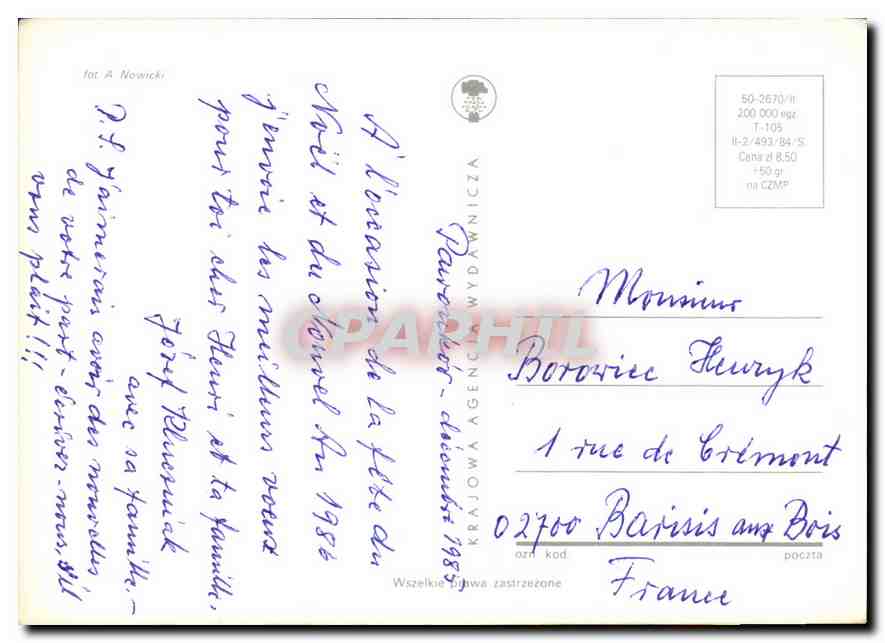 fot. A. Nowicki
Paronków - décembre 1985
A l'occasion de la fête du
Noël et du Nouvel An 1986
j'envoie les meilleurs voeux
pour toi cher Henri et ta famille.
Józef Kluczniak
avec sa famille. -
P.S. J'aimerais avoir des nouvelles
de votre part - écriver-nous, s'il
vous plait!!!
KRAJOWA AGENCJA WYDAWNICZA
50-2670/II
200 000 egz.
T-105
II-2/493/84/S.
Cena zł 8,50
+50 gr
na CZMP
Monsieur
Borowiec Henryk
1 rue de Crémont
02700 Barisis aux Bois
ozn. kod.
poczta
France
Wszelkie prawa zastrzeżone
CPARPHIL